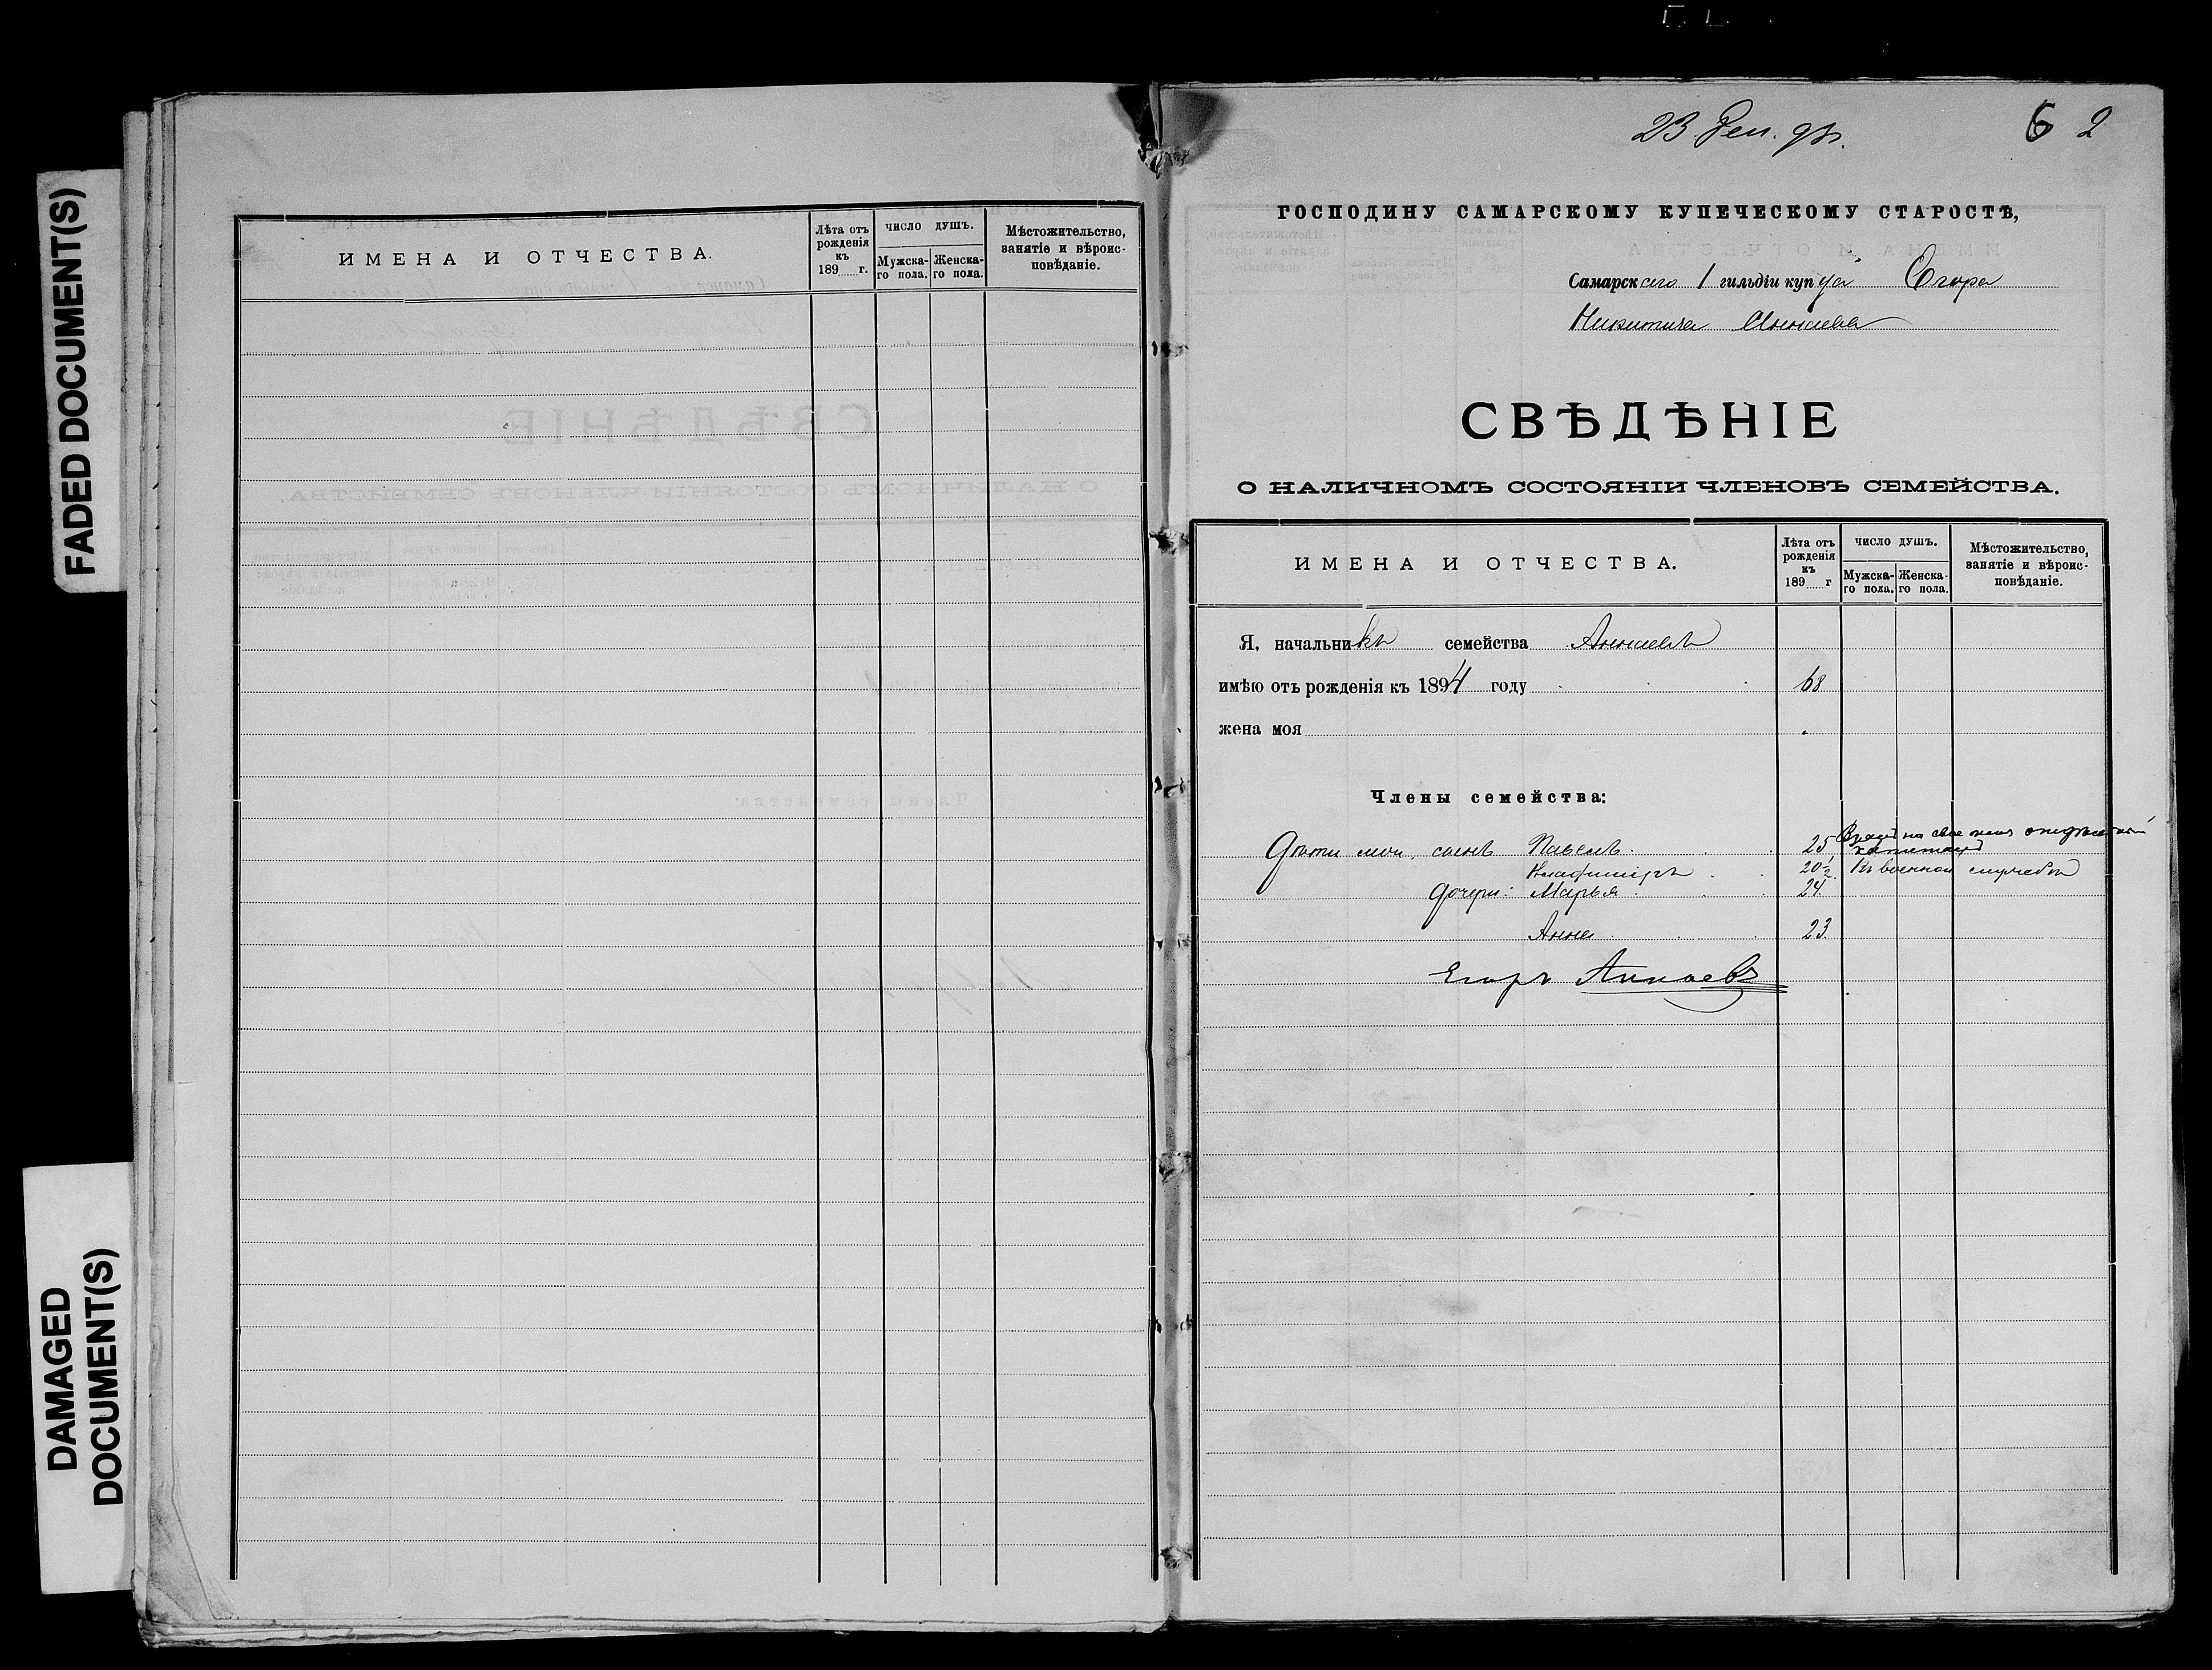 FADED DOCUMENT(S)
DAMAGED
DOCUMENT(S)
ИМЕНА И ОТЧЕСТВА.
Лѣта отъ
рожденія
къ
189 г.
ЧИСЛО ДУШЪ.
Мужска-
го пола.
Женска-
го пола.
Мѣстожительство,
занятіе и вѣроис-
повѣданіе.
23 Ген. 94.
6 2
ГОСПОДИНУ САМАРСКОМУ КУПЕЧЕСКОМУ СТАРОСТѢ,
Самарскаго 1 гильдіи купца Егора
Никитича Аннаева
СВѢДѢНІЕ
О НАЛИЧНОМЪ СОСТОЯНІИ ЧЛЕНОВЪ СЕМЕЙСТВА.
ИМЕНА И ОТЧЕСТВА.
Лѣта отъ
рожденія
къ
189 г
ЧИСЛО ДУШЪ.
Мужска-
го пола.
Женска-
го пола.
Мѣстожительство,
занятіе и вѣроис-
повѣданіе.
Я, начальникъ семейства Аннаевъ
имѣю отъ рожденія къ 1894 году 68
жена моя
Члены семейства:
Дѣти мои, сынъ Павелъ 25
Владиміръ 20 1/2 Въ военной службѣ
дочери: Марья 24
Анна 23.
Егоръ Аннаевъ